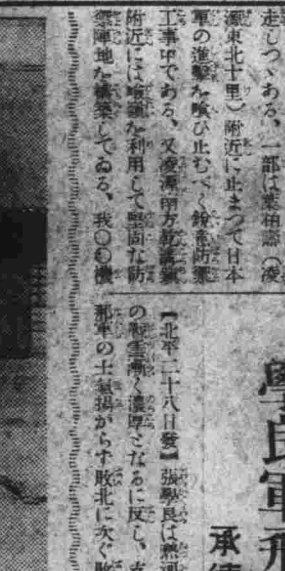 走しつゝある、一部は葉柏壽（凌
源東北十里）附近に止まつて日本
軍の進撃を喰ひ止むべく鋭意防禦
工事中である、又凌源南方
附近には塹壕を利用して堅固な防
禦陣地を構築してゐる、我〇〇機
學良軍
承
【北平二十八日發】張學良は熱河
の戰雲漸く濃厚となるに反し、支
那軍の士氣揚がらず敗北に次ぐ敗